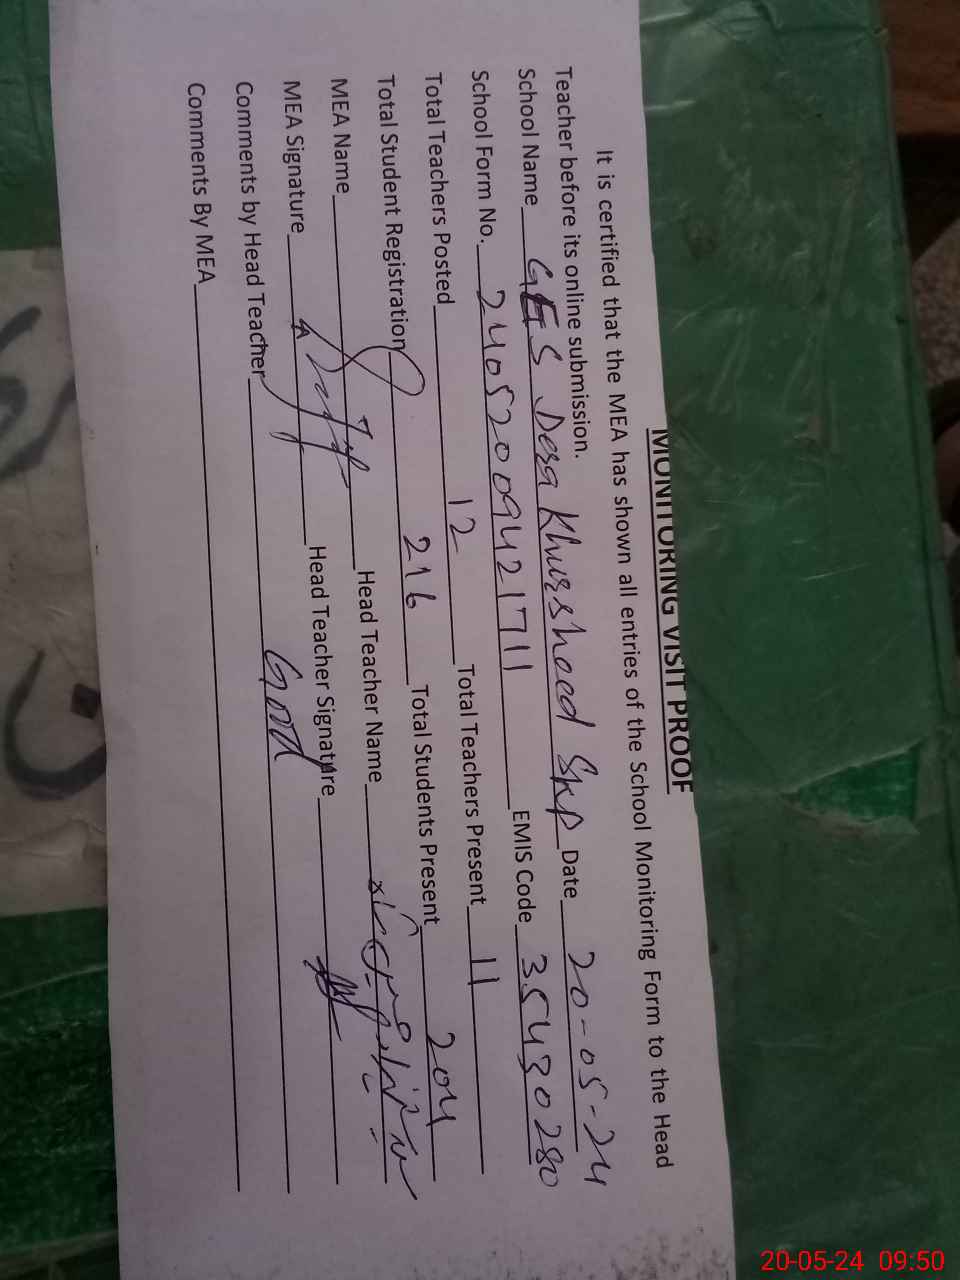 MONITORING VISIT PROOF
It is certified that the MEA has shown all entries of the School Monitoring Form to the Head
Teacher before its online submission.
School Name GES Dera Khursheed SKP Date 20-05-24
School Form No. 24052009421711 EMIS Code 35430280
Total Teachers Posted 12 Total Teachers Present 11
Total Student Registration 216 Total Students Present 204
MEA Name Head Teacher Name
MEA Signature Head Teacher Signature
Comments by Head Teacher Good
Comments By MEA
20-05-24 09:50